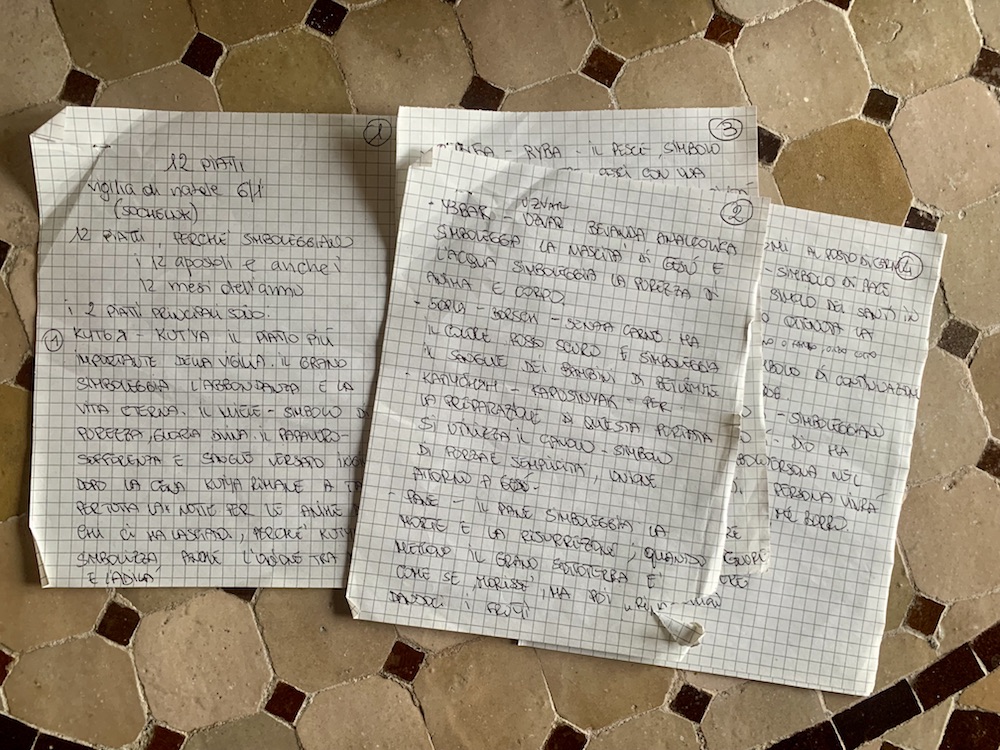 1
12 PIATTI
vigilia di natale 6/1
12 PIATTI, PERCHÉ SIMBOLEGGIANO
i 12 apostoli e anche i
12 mesi dell'anno
i 2 PIATTI PRINCIPALI SONO:
1 КУТЬЯ - KUTYA IL PIATO PIÙ
IMPORTANTE DELLA VIGLIA. IL GRANO
SIMBOLEGGIA L'ABBONDANZA E LA
VITA ETERNA. IL MIELE - SIMBOLO DI
PUREZZA, GLORIA DIVINA. IL PAPAVERO -
SOFFERENZA E SANGUE VERSATO
DOPO LA CENA KUTYA RIMANE A
PER TUTTA LA NOTTE PER LE ANIME
CHI CI HA LASCIATO, PERCHÉ
SIMBOLIZZA ANCHE L'UNIONE TRA
E L'ALDILÀ
3
- RYBA - IL PESCE, SIMBOLO
CON UNA
2
UZVAR
- УЗВАР - UZVAR BEVANDA ANALCOLICA
SIMBOLEGGIA LA NASCITÀ DI GESÙ E
L'ACQUA SIMBOLEGGIA LA PUREZZA DI
ANIMA E CORPO.
- БОРЩ - BORSCH - SENZA CARNE. HA
IL COLORE ROSSO SCURO E SIMBOLEGGIA
IL SANGUE DEI BAMBINI DI BETLEMME
- КАПУСНЯК - KAPUSNYAK - PER
LA PREPARAZIONE DI QUESTA PORTATA
SI UTILIZZA IL CAVOLO - SIMBOLO
DI FORZA E SEMPLICITÀ, UNIONE
ATTORNO A
- PANE - IL PANE SIMBOLEGGIA LA
MORTE E LA RISURREZIONE, QUANDO
METTONO IL GRANO SOTTOTERRA E'
COME SE MORISSE, MA POI
DANDOCI I FRUTTI
4
AL POSTO DI CARNE
- SIMBOLO DI PACE
DEI SANTI IN
LA
DI CONTINUAZIONE
- SIMBOLEGGIANO
- DIO HA
PERSONA NEL
PERSONA VIVRÀ
NEL